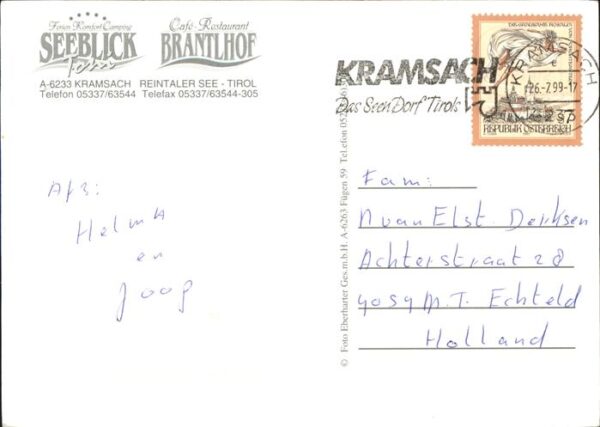 Ferien Komfort Camping
SEEBLICK
Toni
Café-Restaurant
BRANTLHOF
A-6233 KRAMSACH REINTALER SEE - TIROL
Telefon 05337/63544 Telefax 05337/63544-305
KRAMSACH
Das Seen Dorf Tirols
KRAMSACH
26.-7.99-17
REPUBLIK ÖSTERREICH
Afz:
Helma
en
Joop
© Foto Eberharter Ges.m.b.H. A-6263 Fügen 59
Fam:
A van Elst. Derksen
Achterstraat 28
4054 M.T. Echteld
Holland